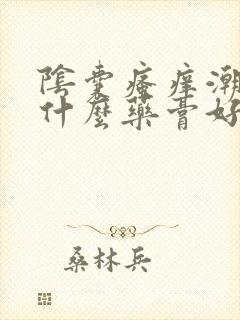 陰囊瘙痒潮
什麼藥膏好
桑林兵